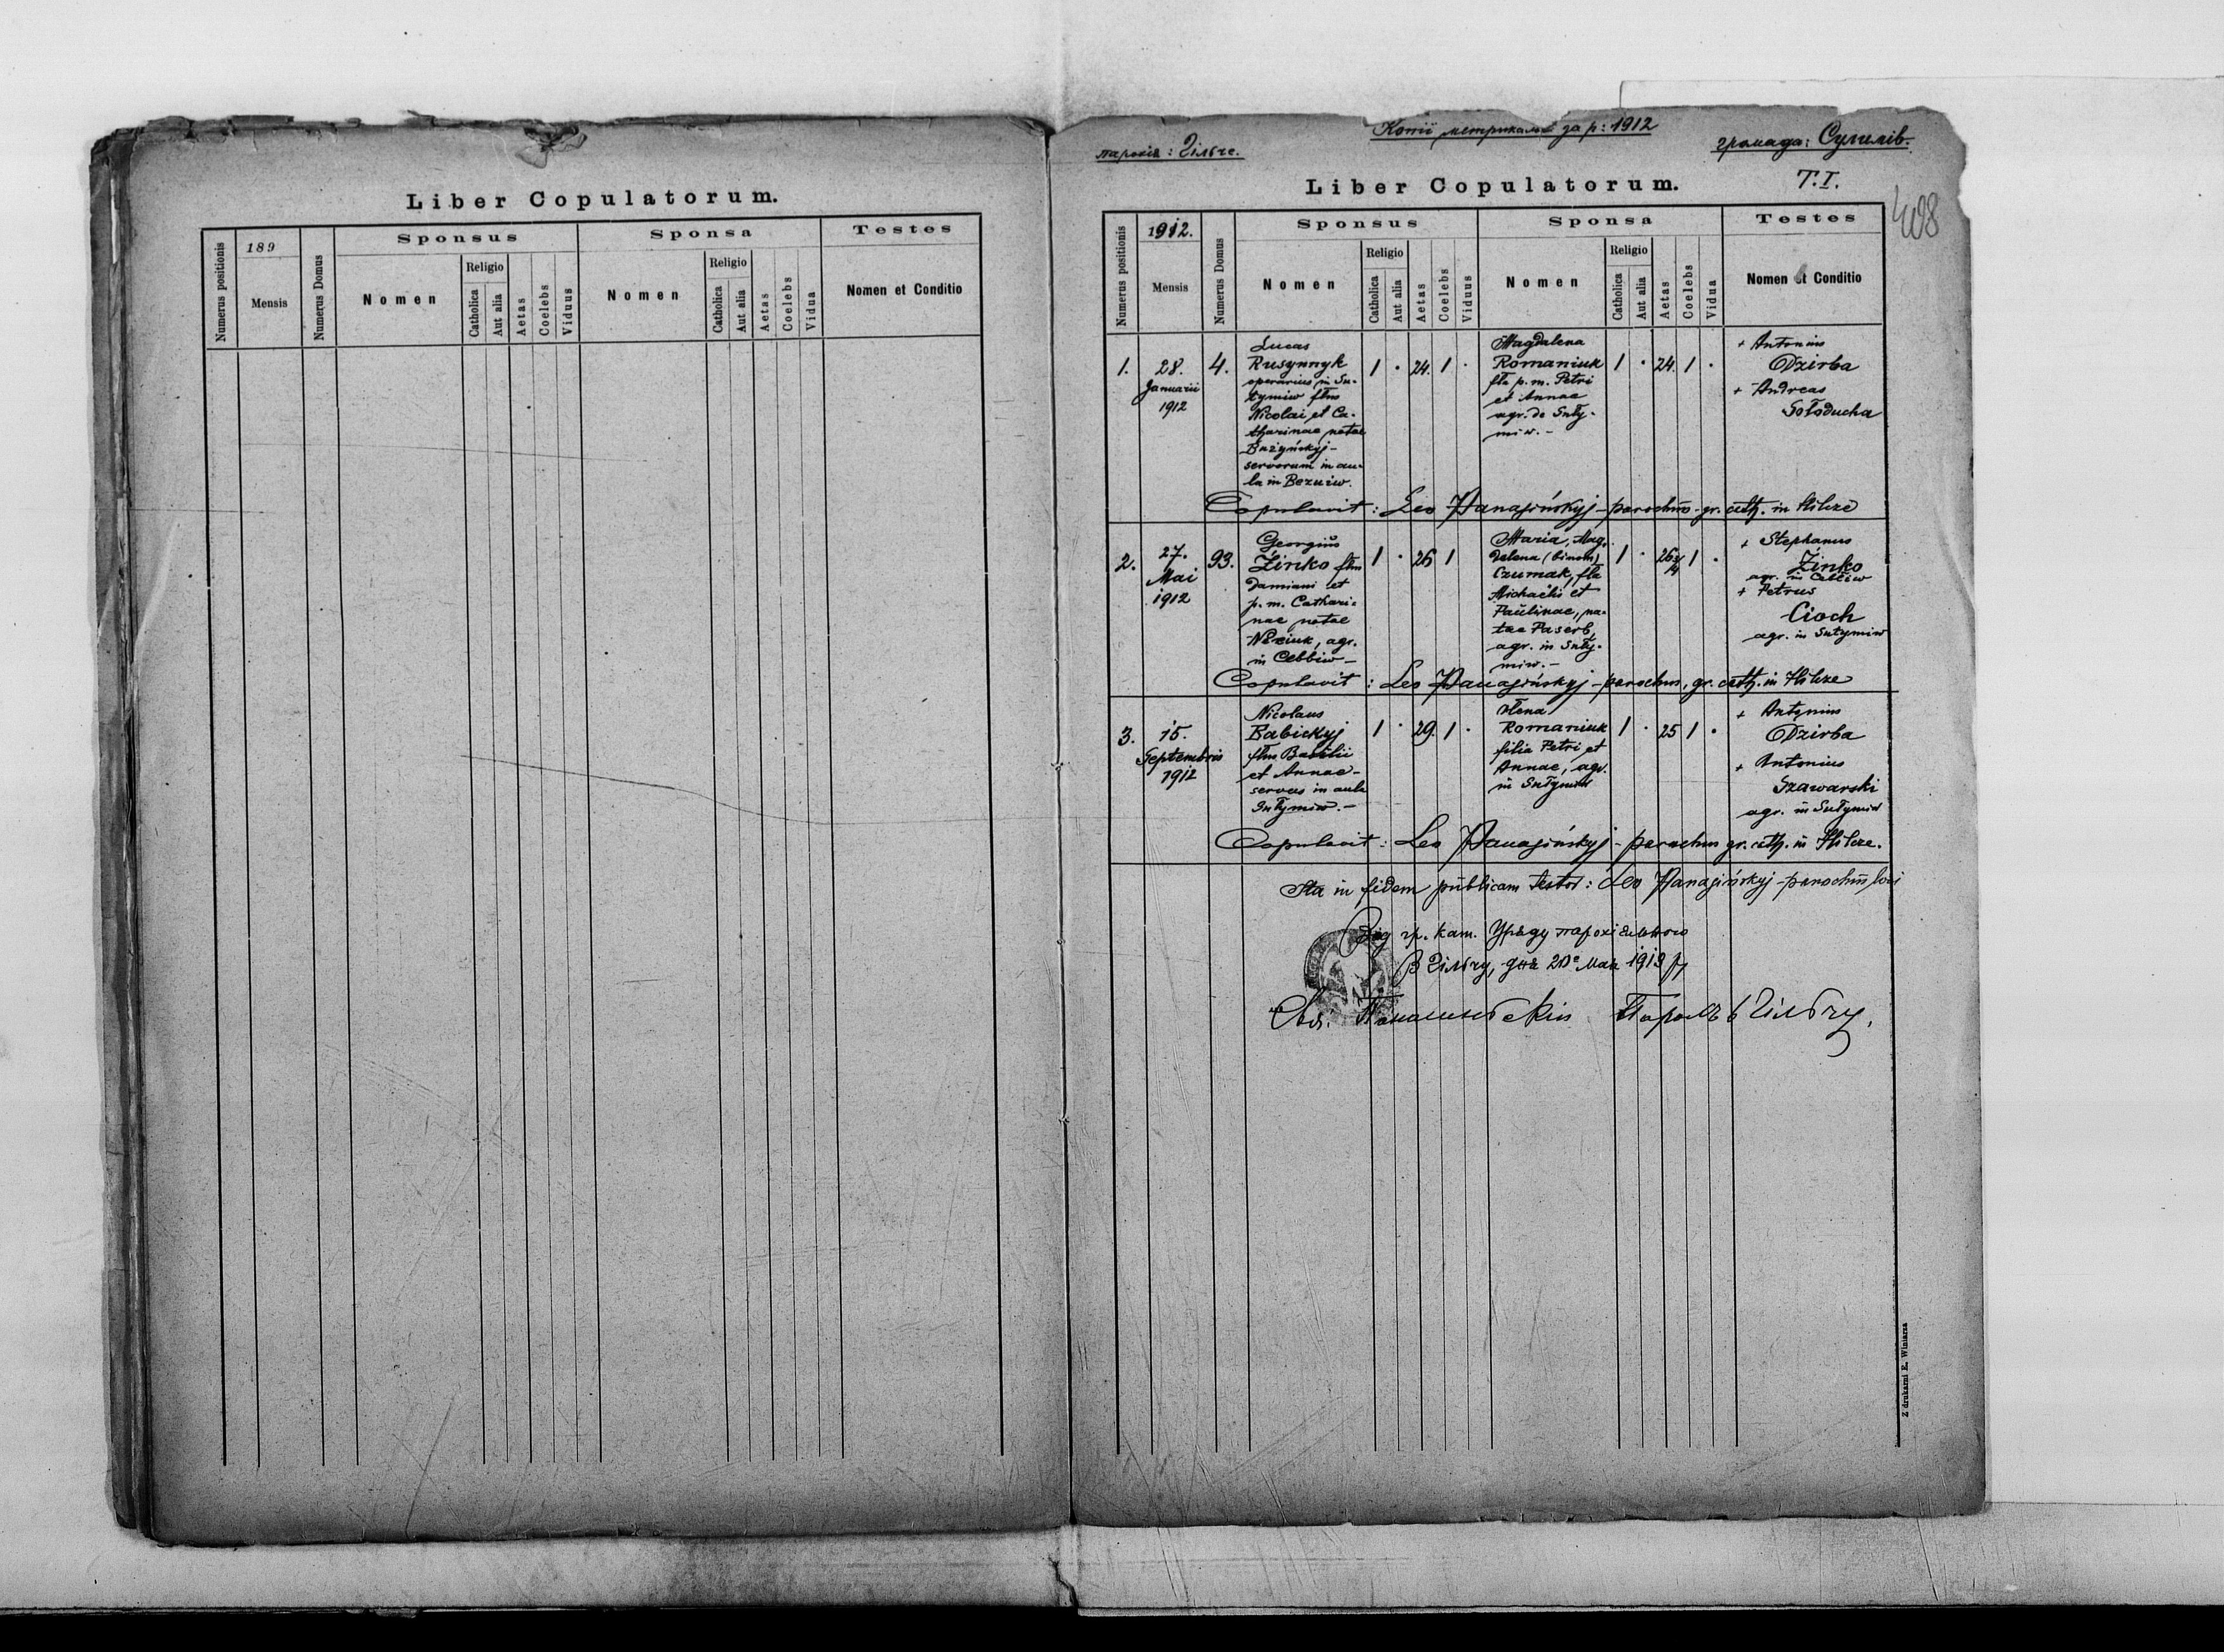 Liber Copulatorum.
Numerus positionis
189
Mensis
Numerus Domus
Sponsus
Nomen
Religio
Catholica
Aut alia
Aetas
Coelebs
Viduus
Sponsa
Nomen
Religio
Catholica
Aut alia
Aetas
Coelebs
Vidua
Testes
Nomen et Conditio
Копії за р: 1912
парохія: Гільче.
громада: Сулимів.
Liber Copulatorum.
T. I.
408
Numerus positionis
1912.
Mensis
Numerus Domus
Sponsus
Nomen
Religio
Catholica
Aut alia
Aetas
Coelebs
Viduus
Sponsa
Nomen
Religio
Catholica
Aut alia
Aetas
Coelebs
Vidua
Testes
Nomen et Conditio
1.
28.
Januarii
1912
4.
Lucas
Rusynnyk
operarius in Su-
łymiw
Nicolai et Ca-
tharinae natae
servorum in au-
la in
1 . 24. 1 .
Magdalena
Romaniuk
fła p. m. Petri
et Annae
agr. de Suły-
miw. -
1 . 24. 1 .
+ Antonius
Dzirba
+ Andreas
Sołoducha
Copulavit: Leo Panasińskyj - parochus gr. cath. in Hilcze
2.
27.
Mai
1912
93.
Georgius
Żinko
Damiani et
p. m. Cathari-
nae natae
agr.
in Cebłiw -
1 . 26 1
Maria, Mag-
dalena (binom)
Czumak, fła
Michaelis et
Paulinae, na-
tae Paserb,
agr. in Suły-
miw. -
1 . 26 1 .
+ Stephanus
Żinko
agr. in Cebłiw
+ Petrus
Cioch
agr. in Sułymiw
Copulavit: Leo Panasińskyj - parochus, gr. cath. in Hilcze
3.
15.
Septembris
1912
Nicolaus
Babickyj
Basilii
et Annae -
servus in aula
Sułymiw. -
1 . 29. 1 .
Ołena
Romaniuk
filia Petri et
Annae, agr.
in Sułymiw
1 . 25 1 .
+ Antonius
Dzirba
+ Antonius
Szawarski
agr. in Sułymiw
Copulavit: Leo Panasińskyj - parochus gr. cath. in Hilcze.
Ita in fidem publicam testor: Leo Panasińskyj - parochus loci
Від гр. кат. Уряду парохіального
в Гільчу, дня 20 Мая 1913
Парох в Гільчу.
Z drukarni E. Winiarza